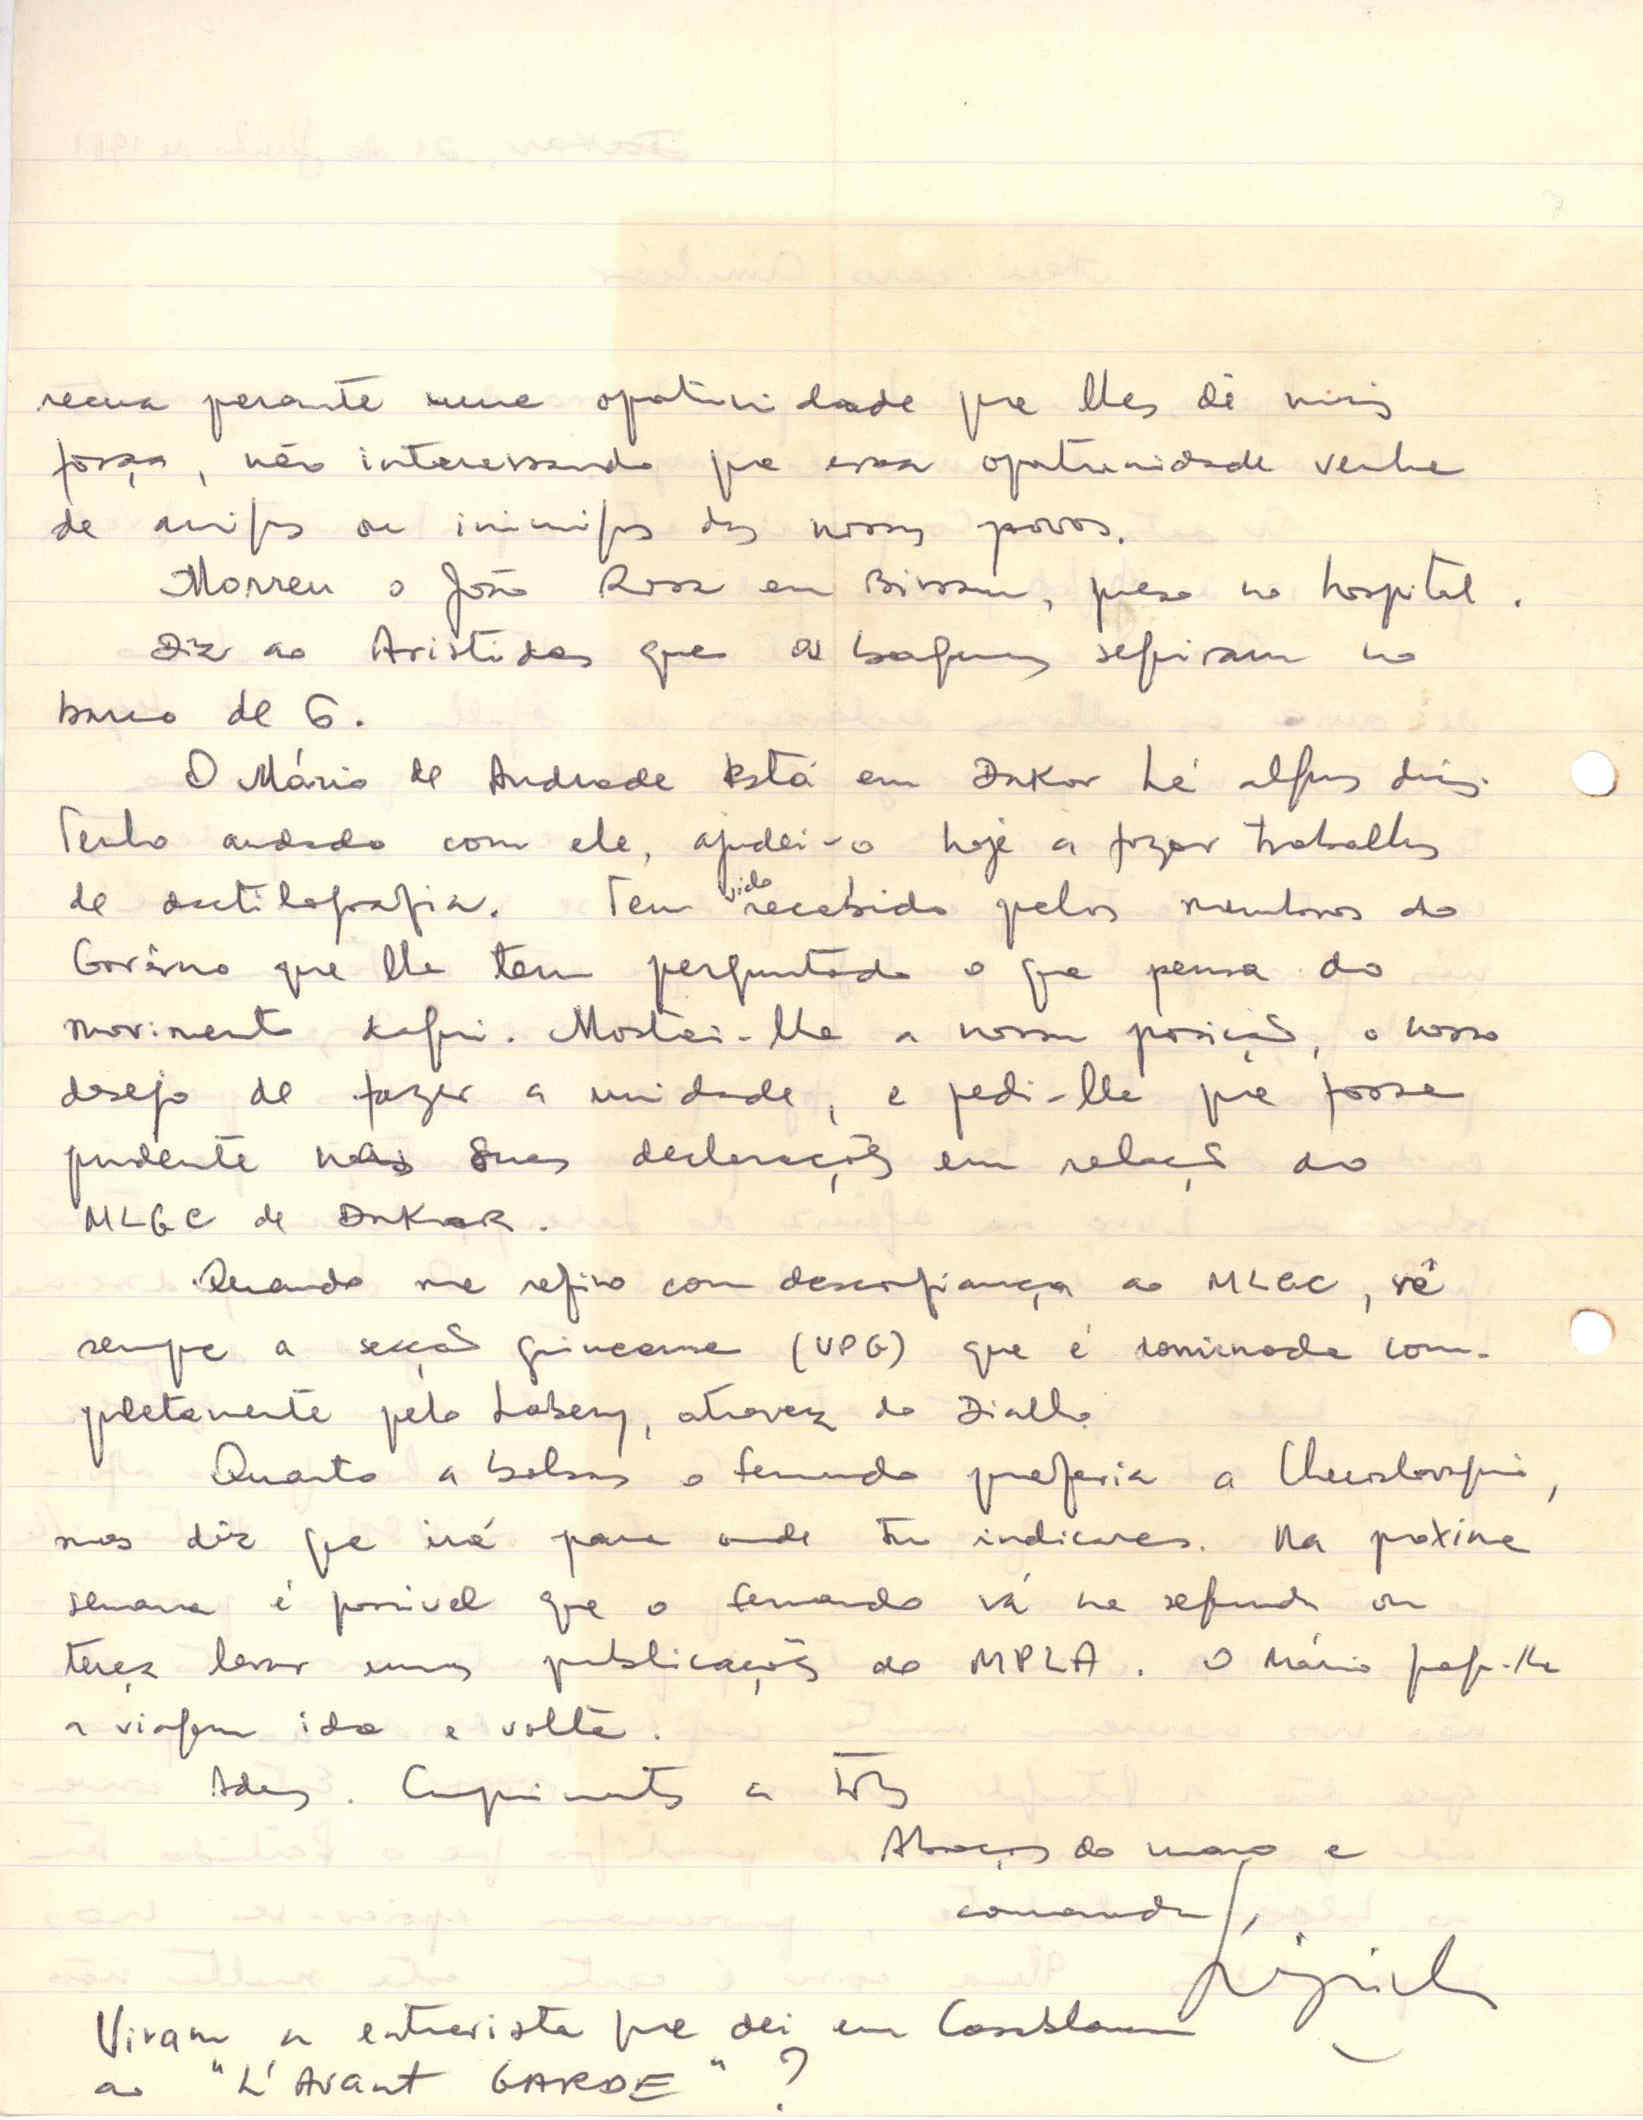 recua perante uma oportunidade que lhes dê mais
força, não interessando que essa oportunidade venha
de amigos ou inimigos dos nossos povos.
Morreu o João Rosa em Bissau, preso no hospital.
Diz ao Aristides que as bagagens seguiram no
barco de 6.
O Mário de Andrade está em Dakar há alguns dias.
Tenho andado com ele, ajudei-o hoje a fazer trabalhos
de dactilografia. Tem sido recebido pelos membros do
Govêrno que lhe tem perguntado o que pensa do
movimento aqui. Mostrei-lhe a nossa posição, o nosso
desejo de fazer a unidade, e pedi-lhe que fosse
prudente nas suas declarações em relação ao
MLGC de Dakar.
Quando me refiro com desconfiança ao MLGC, vê
sempre a secção guineense (UPG) que é dominada com-
pletamente pelo Labery, atravez do Diallo
Quanto a bolsas o Fernando preferia a Checoslováquia,
mas diz que irá para onde tu indicares. Na proxima
semana é possivel que o Fernando vá na segunda ou
terça levar umas publicações do MPLA. O Mário paga-lhe
a viagem ida e volta.
Adeus. Cumprimentos a todos
Abraços do mano e
camarada,
Viram a entrevista que dei em Casablanca
ao "L'Avant GARDE"?